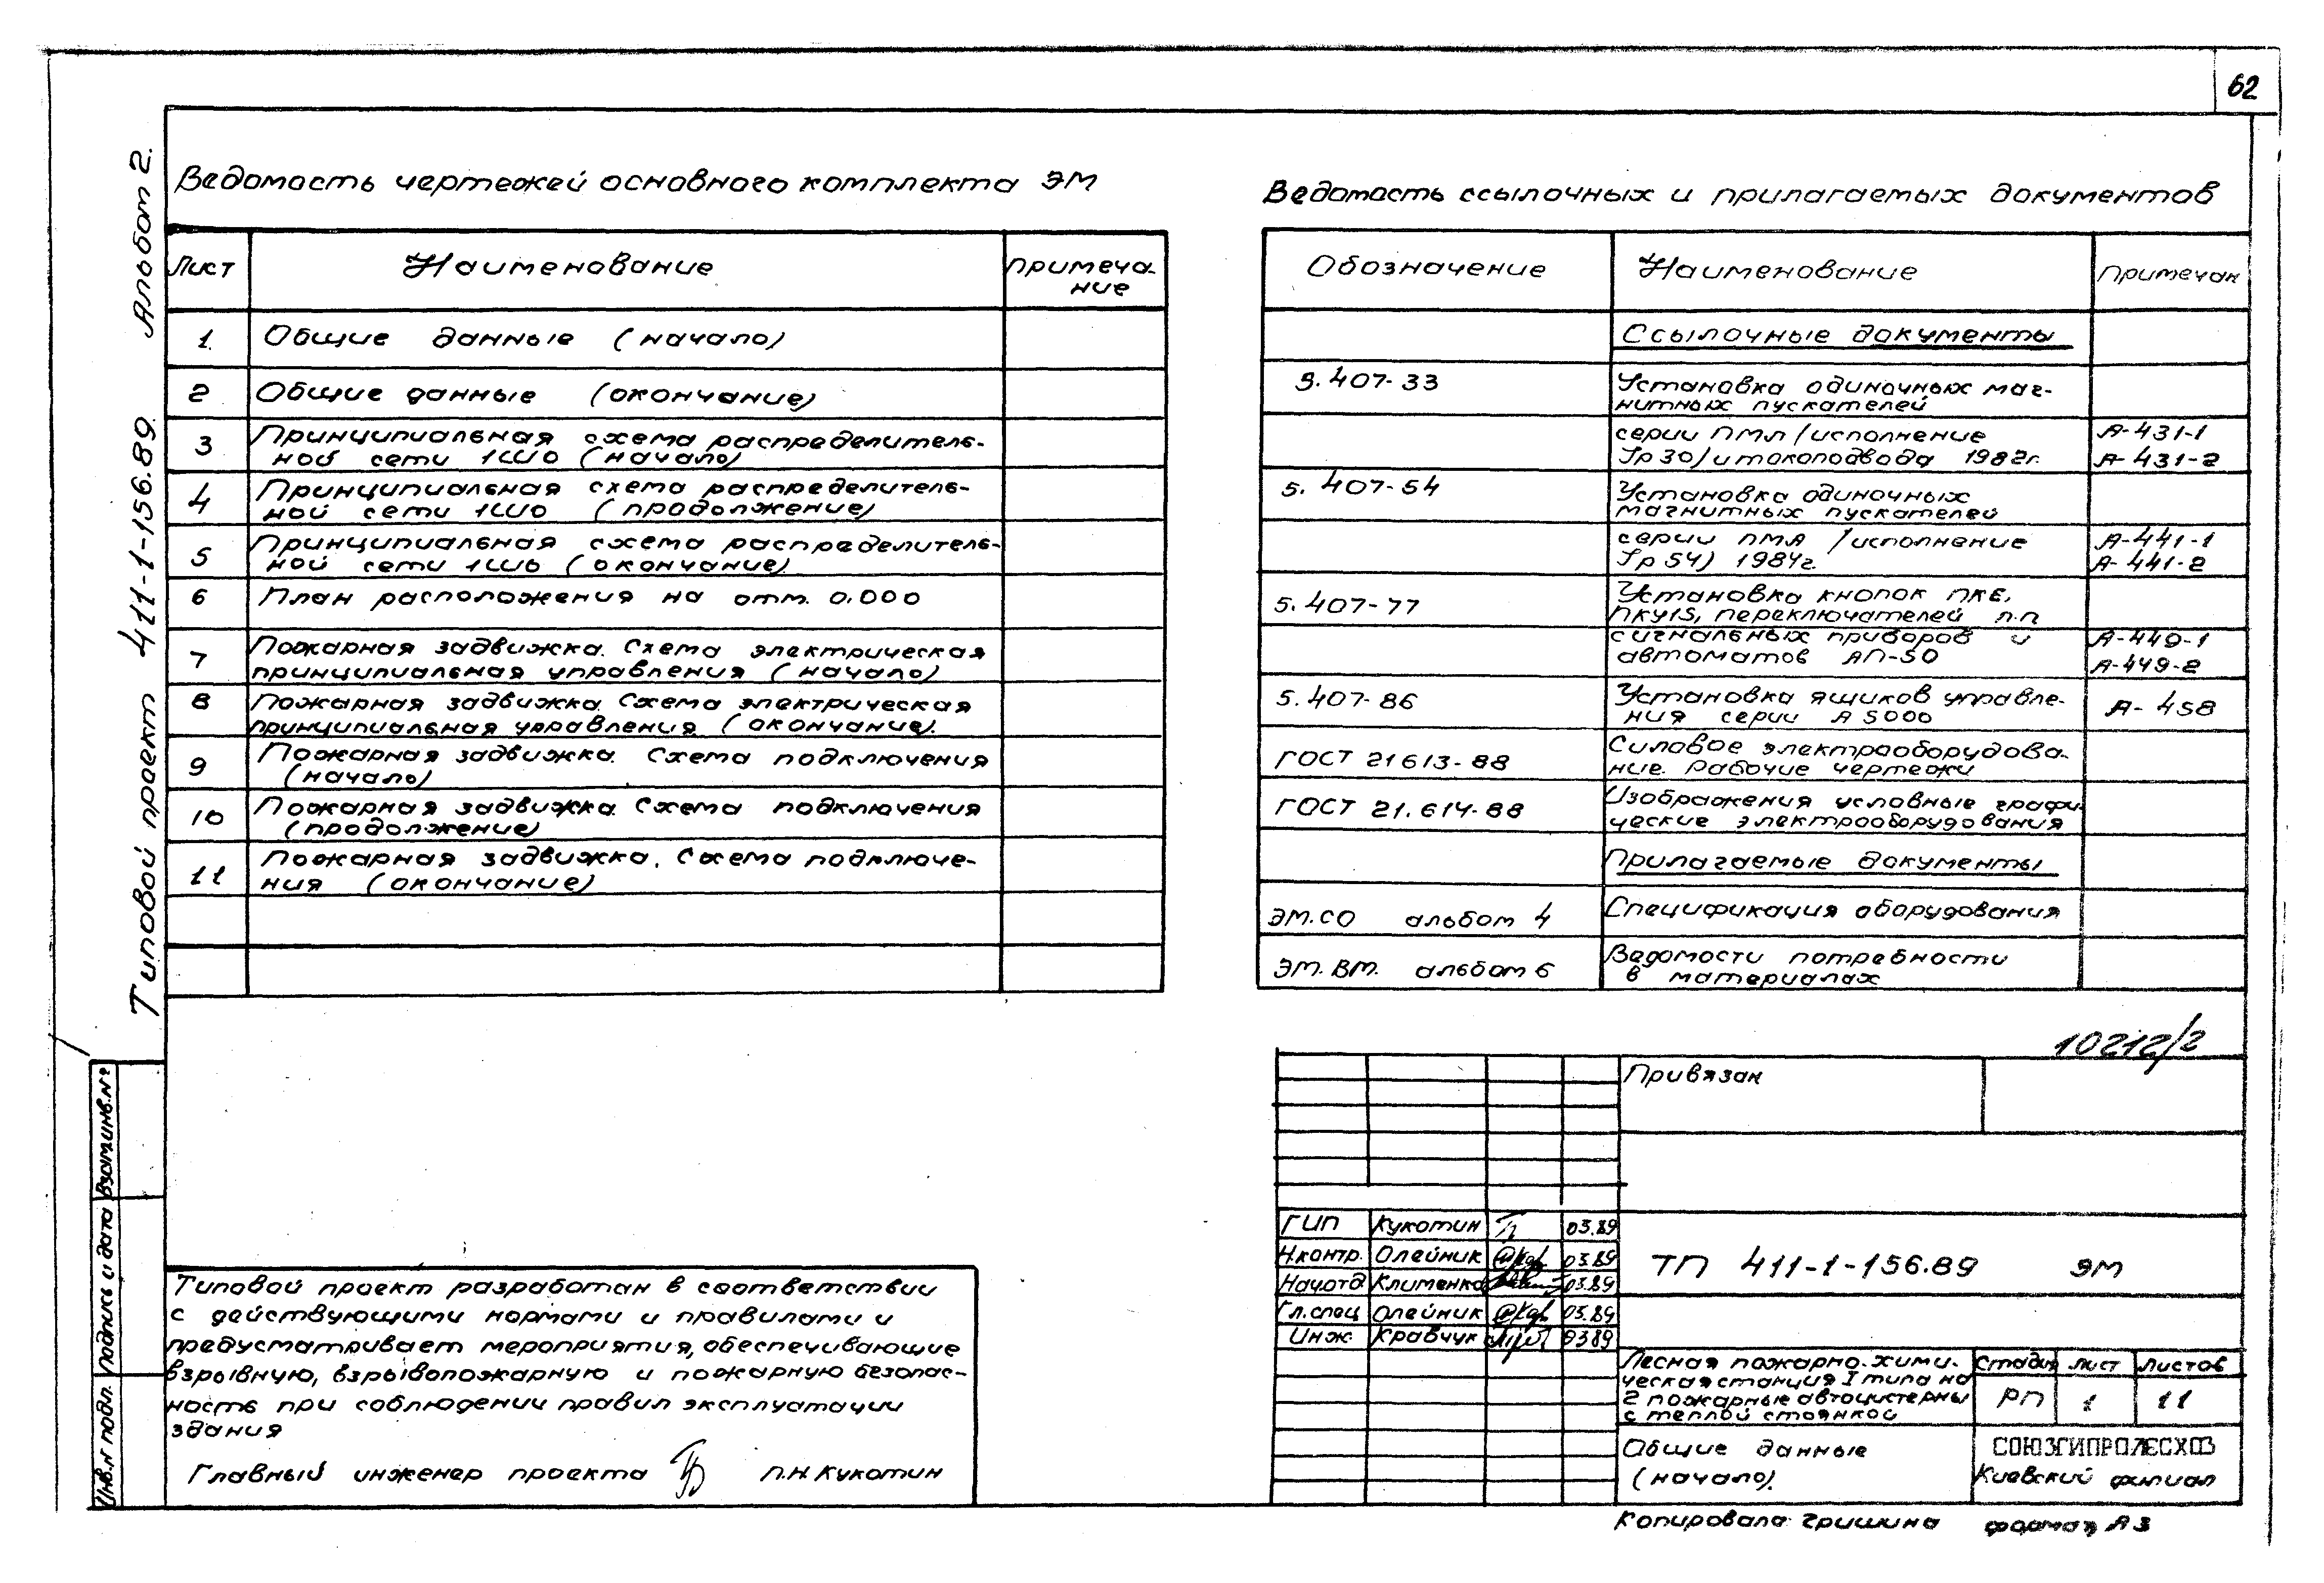 62
Типовой проект 411-1-156.89 Альбом 2.
Ведомость чертежей основного комплекта ЭМ
Лист Наименование Примеча-
ние
1 Общие данные (начало)
2 Общие данные (окончание)
3 Принципиальная схема распределитель-
ной сети 1ШО (начало)
4 Принципиальная схема распределитель-
ной сети 1ШО (продолжение)
5 Принципиальная схема распределитель-
ной сети 1ШО (окончание)
6 План расположения на отм. 0.000
7 Пожарная задвижка. Схема электрическая
принципиальная управления (начало)
8 Пожарная задвижка. Схема электрическая
принципиальная управления (окончание).
9 Пожарная задвижка. Схема подключения
(начало)
10 Пожарная задвижка. Схема подключения
(продолжение)
11 Пожарная задвижка. Схема подключе-
ния (окончание)
Ведомость ссылочных и прилагаемых документов
Обозначение Наименование Примечан
Ссылочные документы
5.407-33 Установка одиночных маг-
нитных пускателей
серии ПМЛ /исполнение А-431-1
Jp30/ и токоподвода 1982г. А-431-2
5.407-54 Установка одиночных
магнитных пускателей
серии ПМА /исполнение А-441-1
Jp54) 1984г. А-441-2
5.407-77 Установка кнопок ПКЕ,
ПКУ15, переключателей п.п
сигнальных приборов и А-449-1
автоматов АП-50 А-449-2
5.407-86 Установка ящиков управле-
ния серии А5000 А-458
ГОСТ 21613-88 Силовое электрооборудова-
ние. Рабочие чертежи
ГОСТ 21.614-88 Изображения условные графи-
ческие электрооборудования
Прилагаемые документы
ЭМ.СО альбом 4 Спецификация оборудования
ЭМ.ВМ. альбом 6 Ведомости потребности
в материалах
10212/2
Привязан
ГИП Кукотин 03.89
Н.контр. Олейник 03.89
Нач.отд Клименко 03.89
Гл.спец Олейник 03.89
Инж. Кравчук 0389
ТП 411-1-156.89 ЭМ
Лесная пожарно-хими-
ческая станция I типа на
2 пожарные автоцистерны
с теплой стоянкой
Стадия Лист Листов
РП 1 11
Общие данные
(начало).
СОЮЗГИПРОЛЕСХОЗ
Киевский филиал
Копировала Гришина формат А3
Типовой проект разработан в соответствии
с действующими нормами и правилами и
предусматривает мероприятия, обеспечивающие
взрывную, взрывопожарную и пожарную безопас-
ность при соблюдении правил эксплуатации
здания
Главный инженер проекта П.Н. Кукотин
Инв.№ подл. Подпись и дата Взам.инв.№